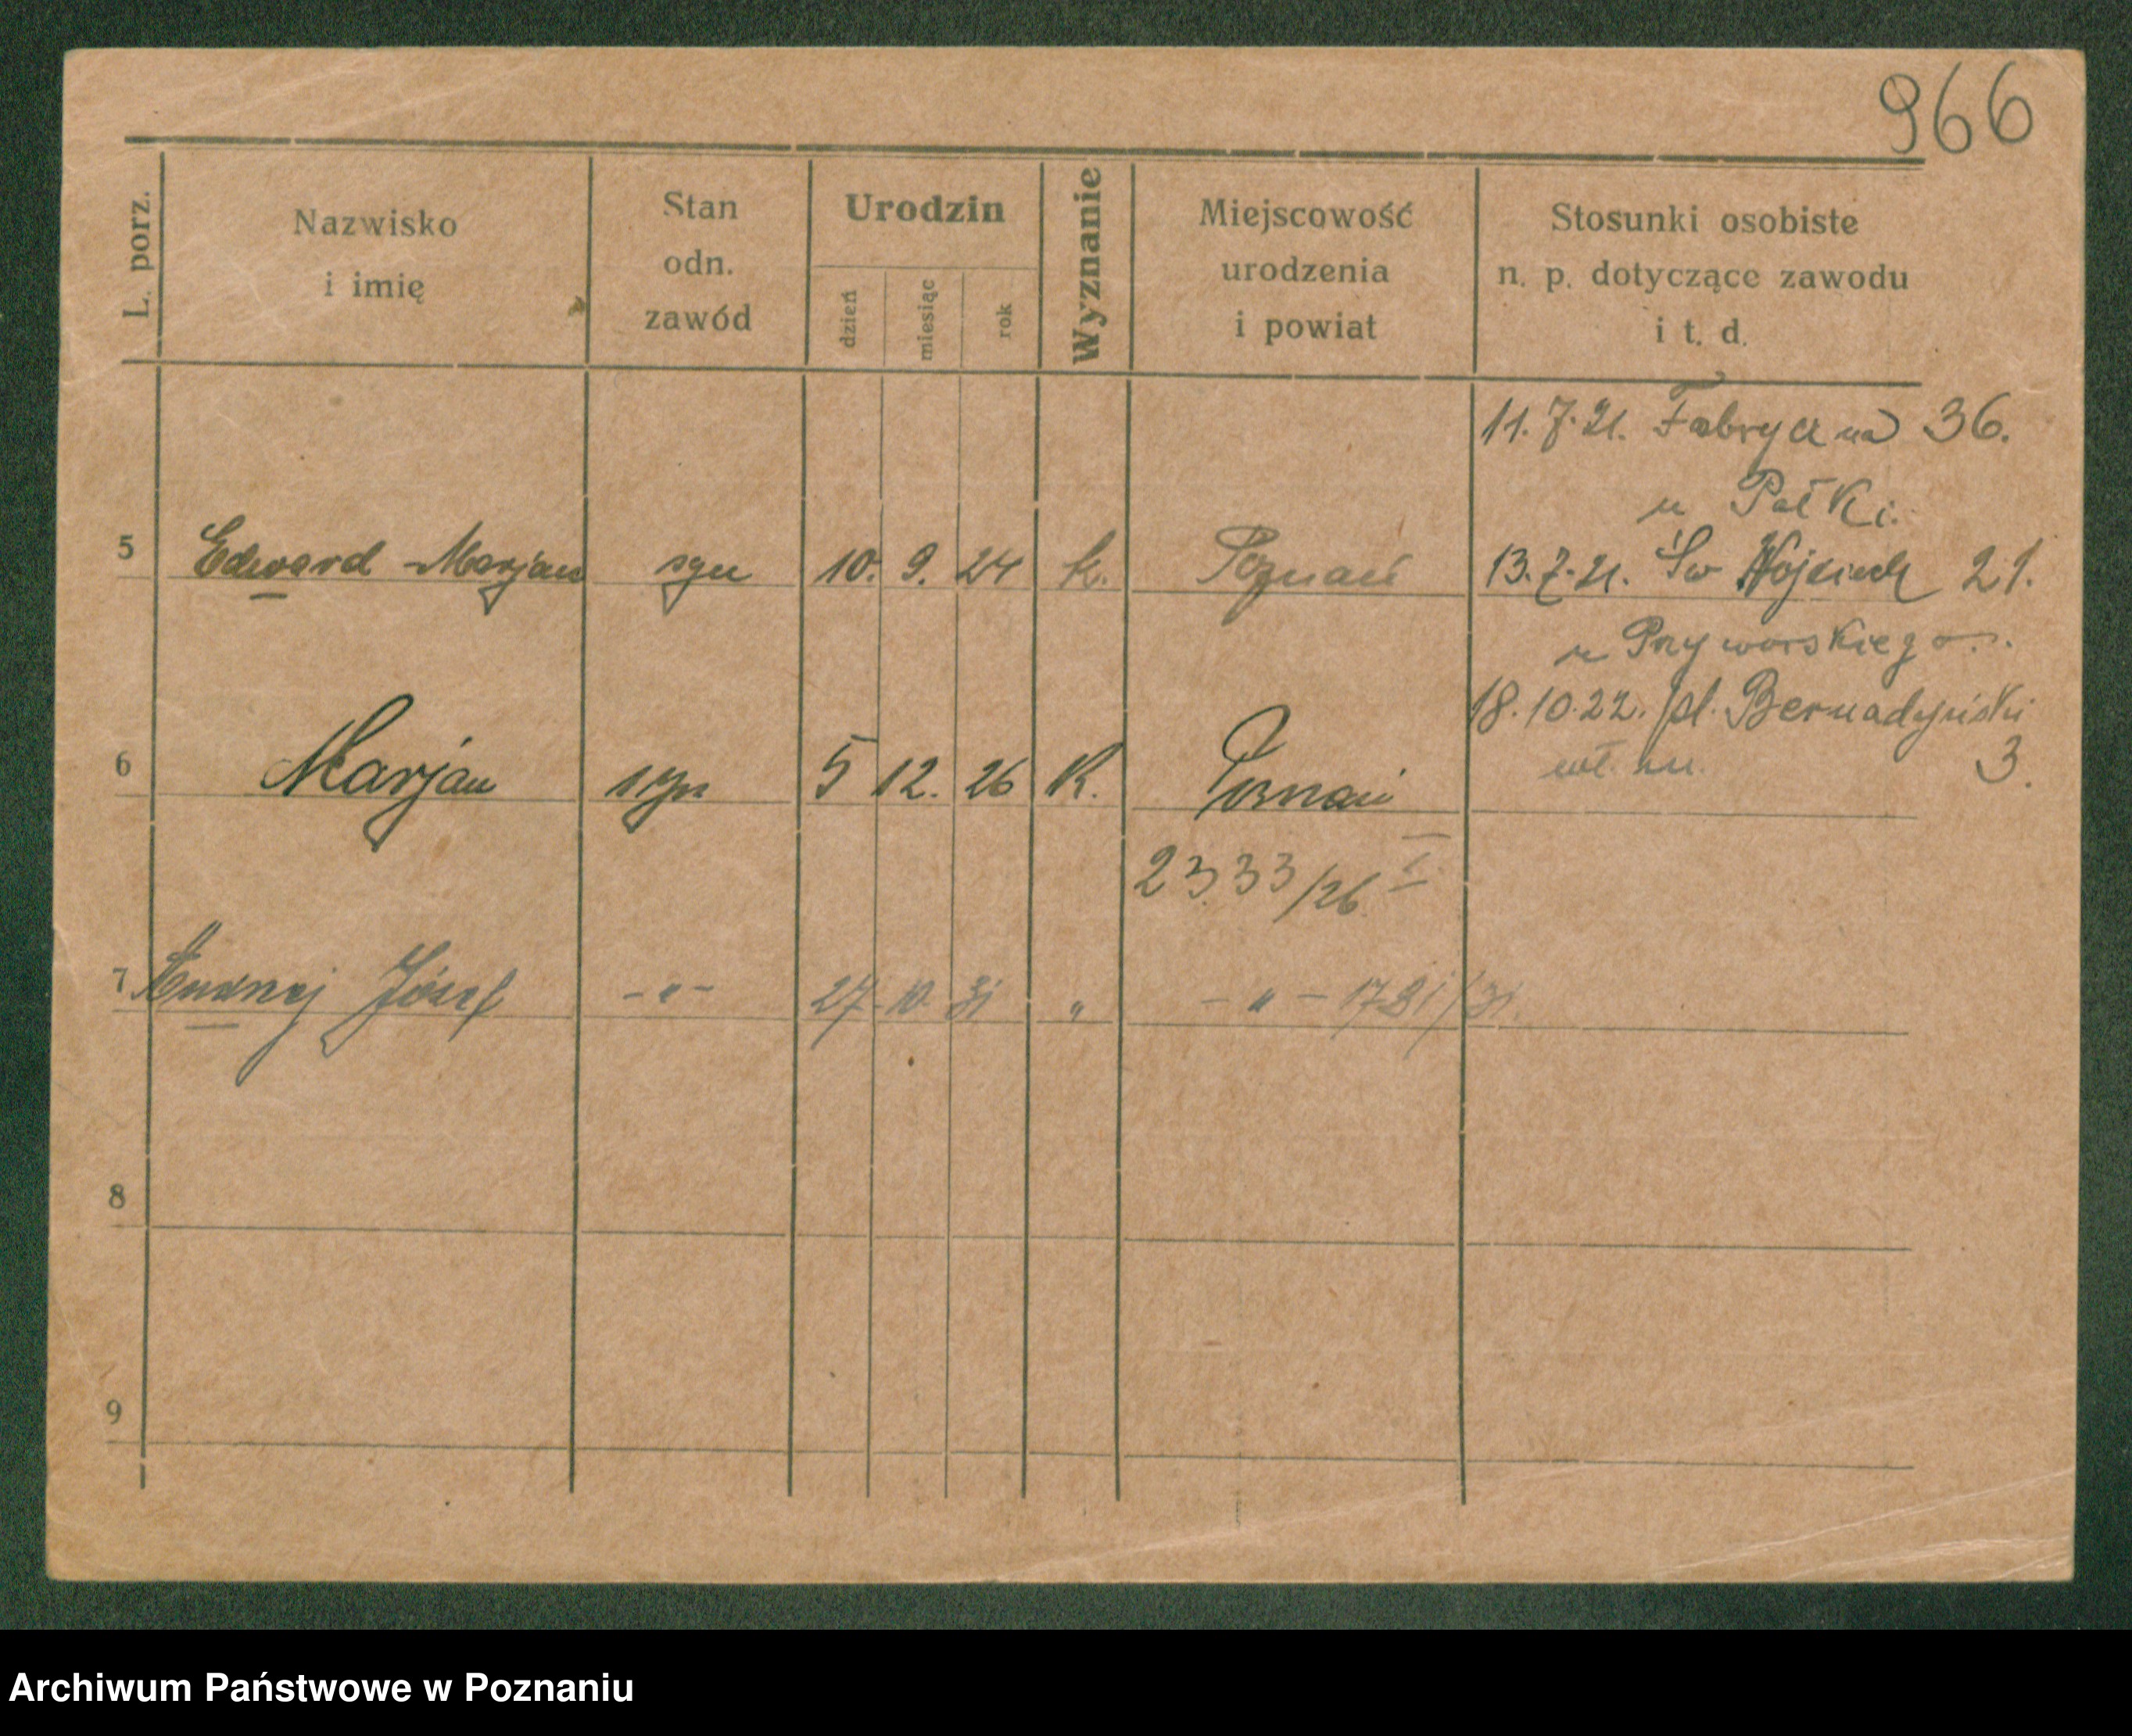 966
L. porz.
Nazwisko
i imię
Stan
odn.
zawód
Urodzin
dzień
miesiąc
rok
Wyznanie
Miejscowość
urodzenia
i powiat
Stosunki osobiste
n. p. dotyczące zawodu
i t. d.
11.7.21. Fabryczna 36.
u Pałki.
5 Edward Marjan syn 10. 9. 24 k. Poznań 13.7.21. Św Wojciech 21.
u
18.10.22. pl. Bernadyński
3.
6 Marjan syn 5 12. 26 K. Poznań
2333/26 I
7 Andrzej Józef -"- 27 10 31 " -"- 1731/31.
8
9
Archiwum Państwowe w Poznaniu